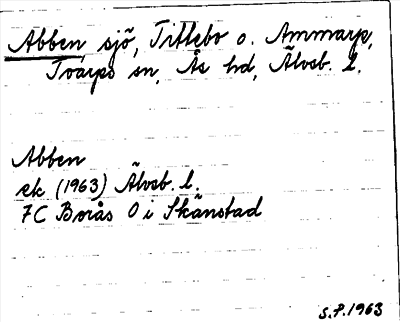 Abben sjö, Tittebo o. Ammarp,
Tvärps sn, Ås hd, Älvsb. l.
Abben
ek (1963) Älvsb. l.
7C Borås O i Skänstad
S.P. 1963